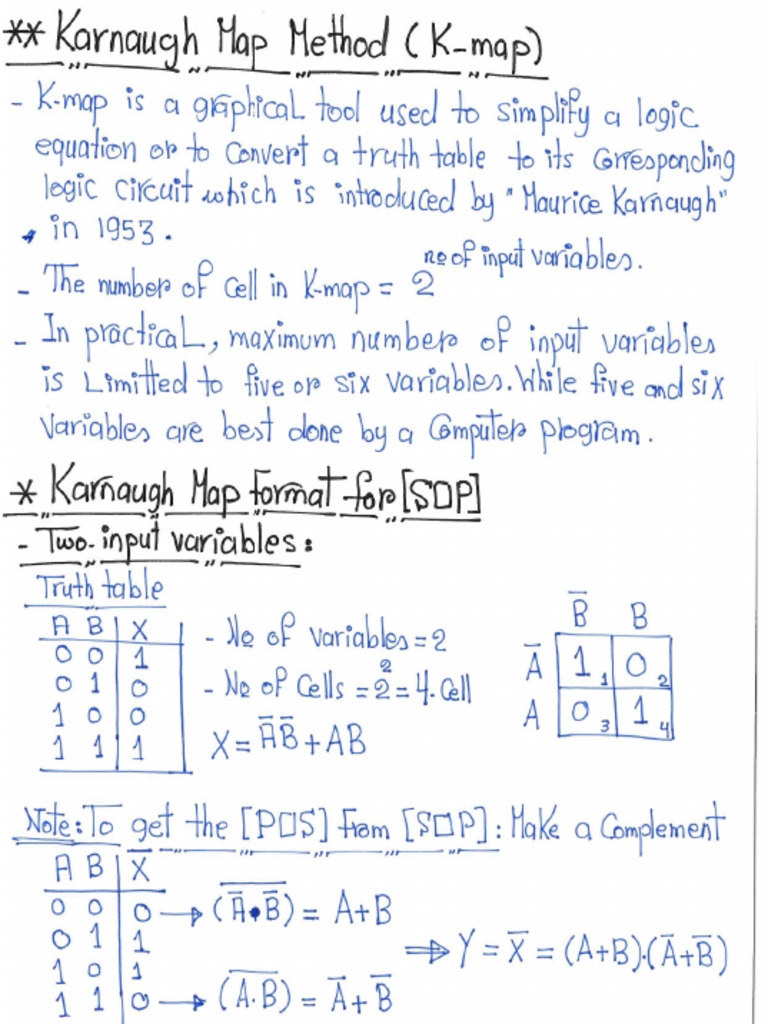 ** Karnaugh Map Method (K-map)
- K-map is a graphical tool used to simplify a logic
equation or to convert a truth table to its corresponding
logic circuit which is introduced by "Maurice Karnaugh"
in 1953.
- The number of cell in K-map = 2^no of input variables.
- In practical, maximum number of input variables
is Limitted to five or six variables. While five and six
variables are best done by a Computer program.
* Karnaugh Map Format for [SOP]
- Two-input variables:
Truth table
A B X
0 0 1
0 1 0
1 0 0
1 1 1
- No of variables = 2
- No of Cells = 2² = 4-Cell
X = A̅B̅ + AB
B̅ B
A̅ 1 1 0 2
A 0 3 1 4
Note: To get the [POS] from [SOP]: Make a Complement
A B X̅
0 0 0 → (A̅•B̅)‾ = A+B
0 1 1
1 0 1
1 1 0 → (A.B)‾ = A̅+B̅
⇒ Y = X̅ = (A+B).(A̅+B̅)